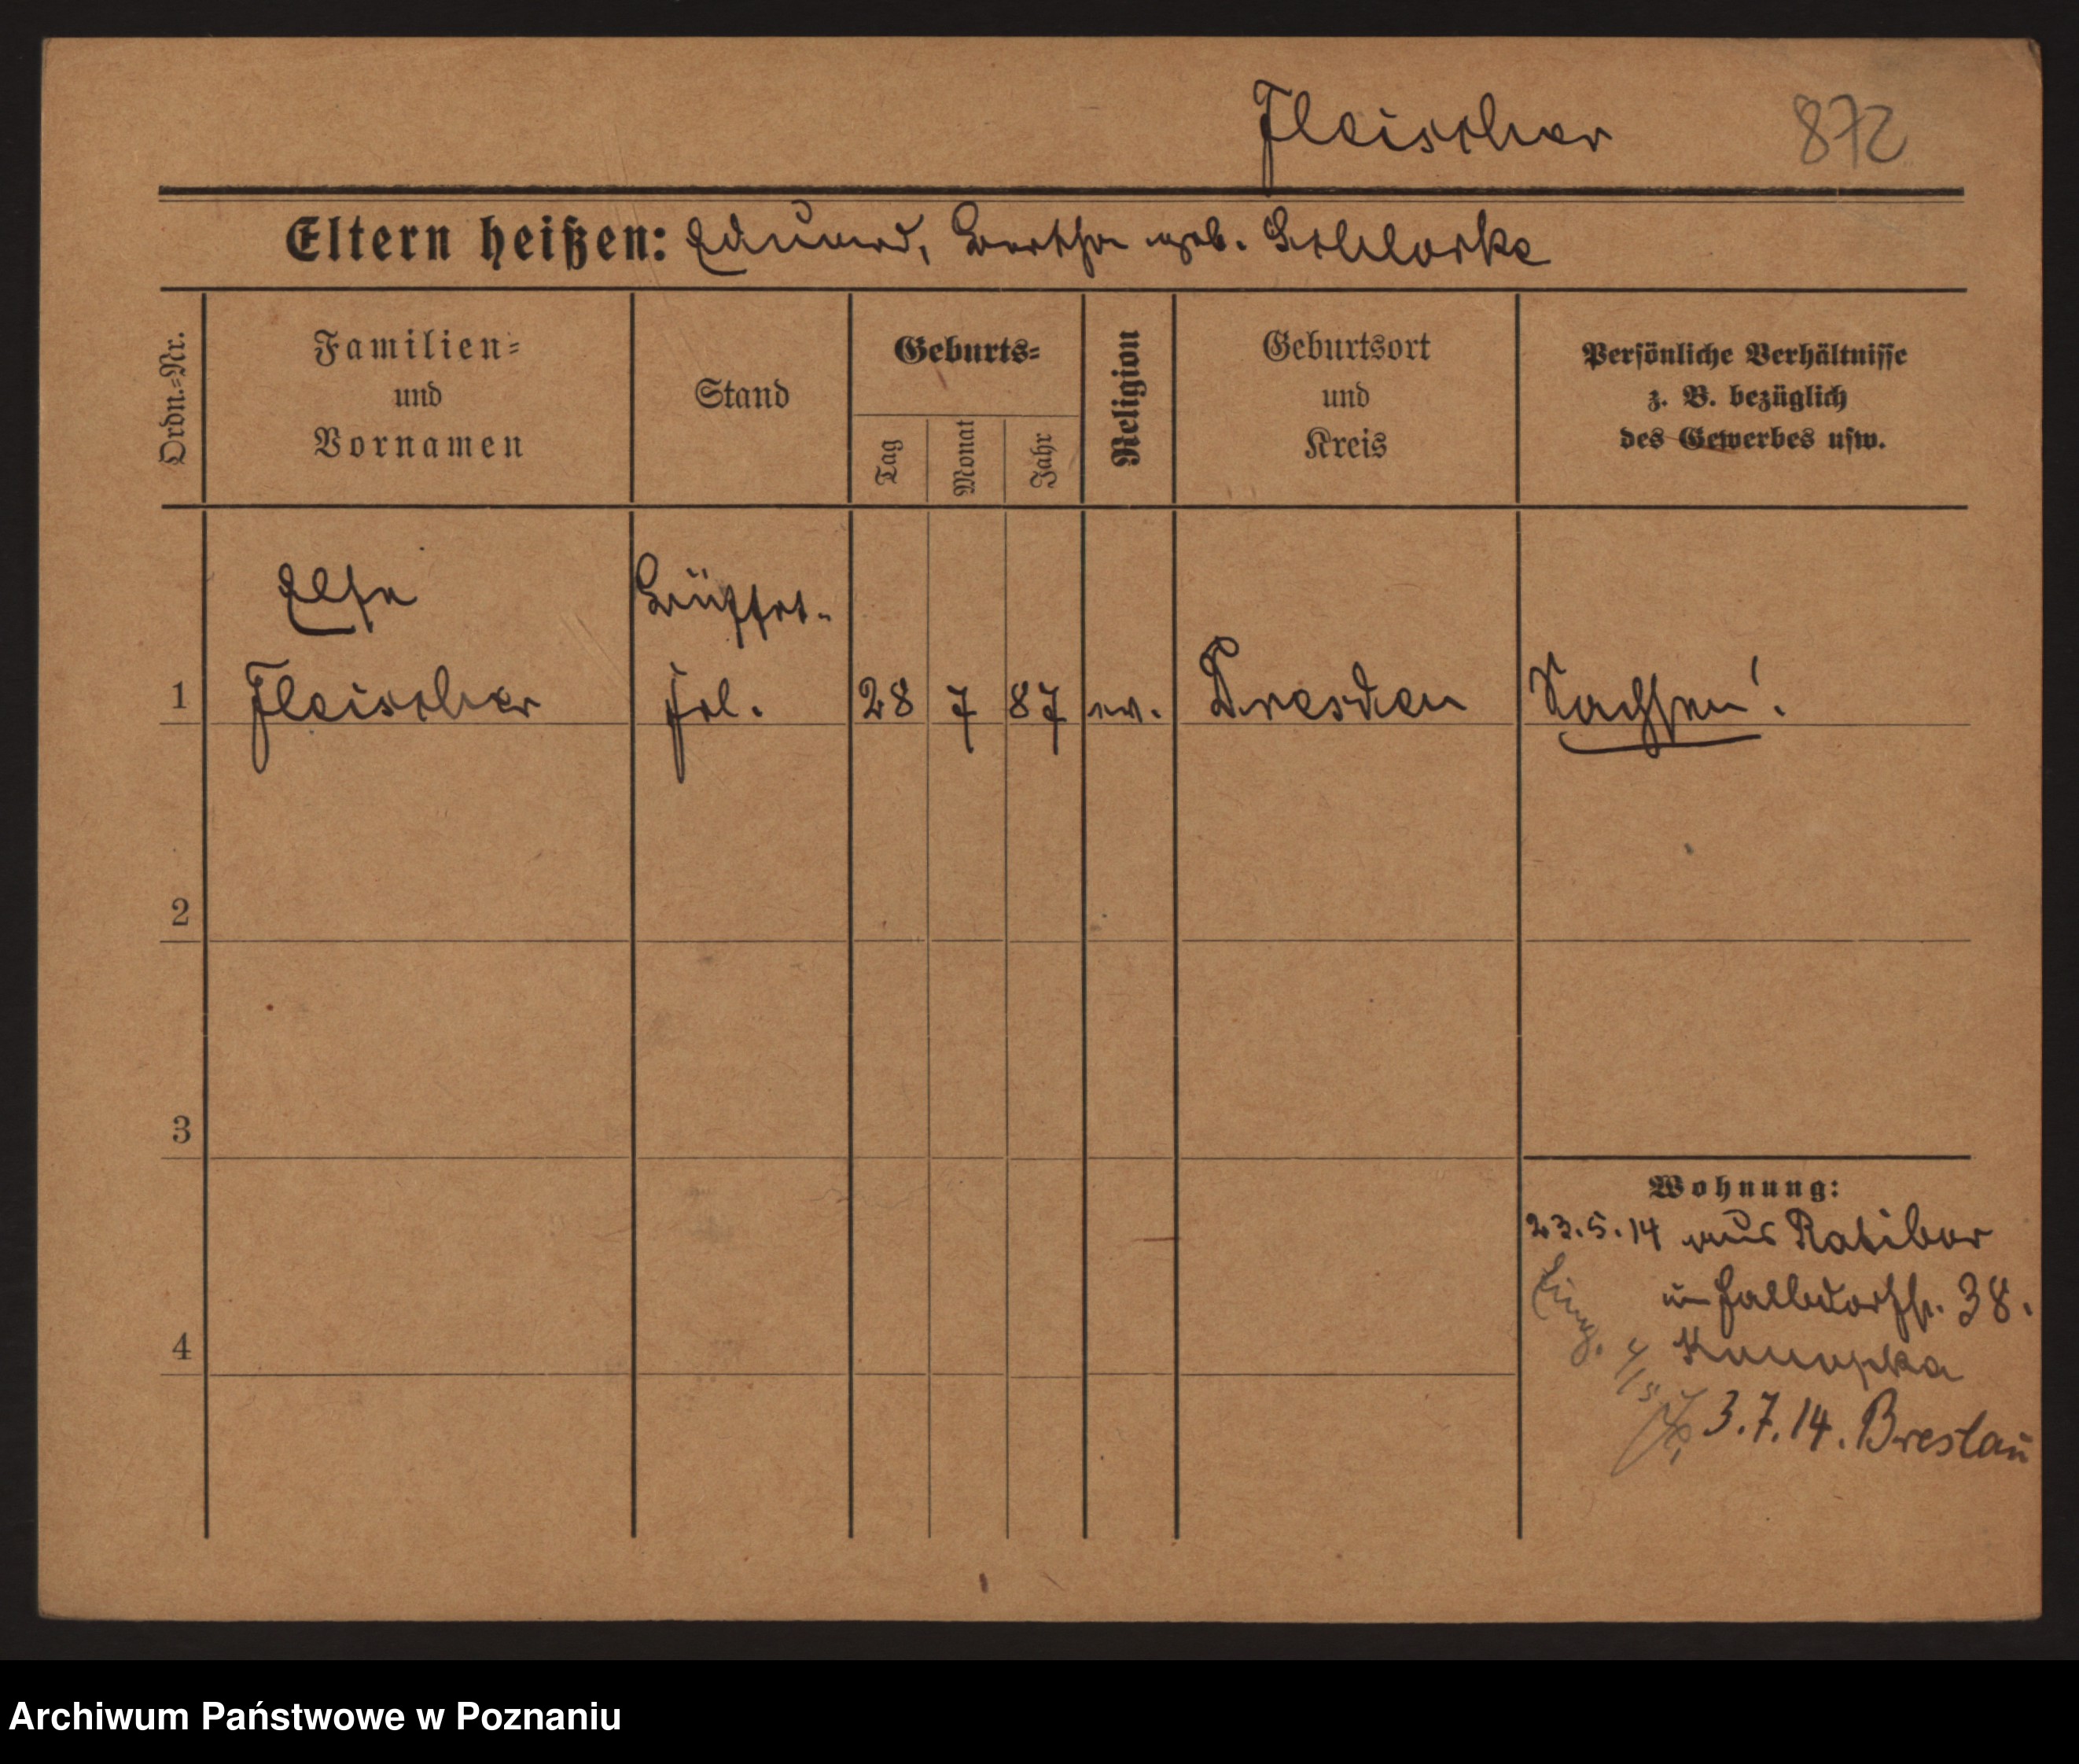 Fleischer 872
Eltern heißen: Eduard, Bertha geb. Schlorke
Ordn.=Nr.
Familien=
und
Vornamen
Stand
Geburts=
Tag
Monat
Jahr
Religion
Geburtsort
und
Kreis
Persönliche Verhältnisse
z. B. bezüglich
des Gewerbes usw.
Elsa Büffet-
1 Fleischer frl. 28 7 87 ev. Dresden Sachsen!
2
3
4
Wohnung:
23.5.14 aus Ratibor
38.
Konopka
3.7.14. Breslau
Archiwum Państwowe w Poznaniu